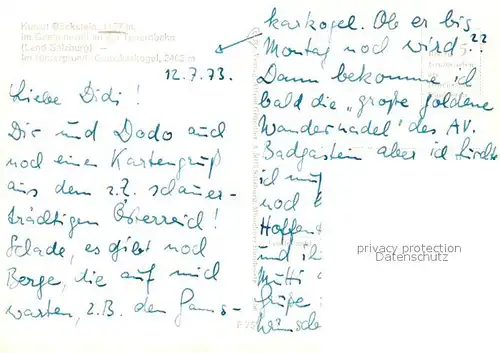 Kurort Böckstein, 1127 m,
im Gasteinertal an der Tauernbahn
(Land Salzburg) —
Im Hintergrund: Gamskarkogel, 2465 m
12.7.73.
Liebe Didi!
Dir und Dodo auch
noch einen Kartengruß
aus dem z.Z. schauer-
trächtigen Österreich!
Schade, es gibt noch
Berge, die auf mich
warten, z.B. den Gams-
karkogel. Ob er bis
Montag noch wird??
Dann bekomme ich
bald die „große goldene
Wandernadel" des AV.
Badgastein aber ich fürchte
ich muß
noch
Hoffent
und ih
Mutti
Grüße
wünsche
privacy protection
Datenschutz